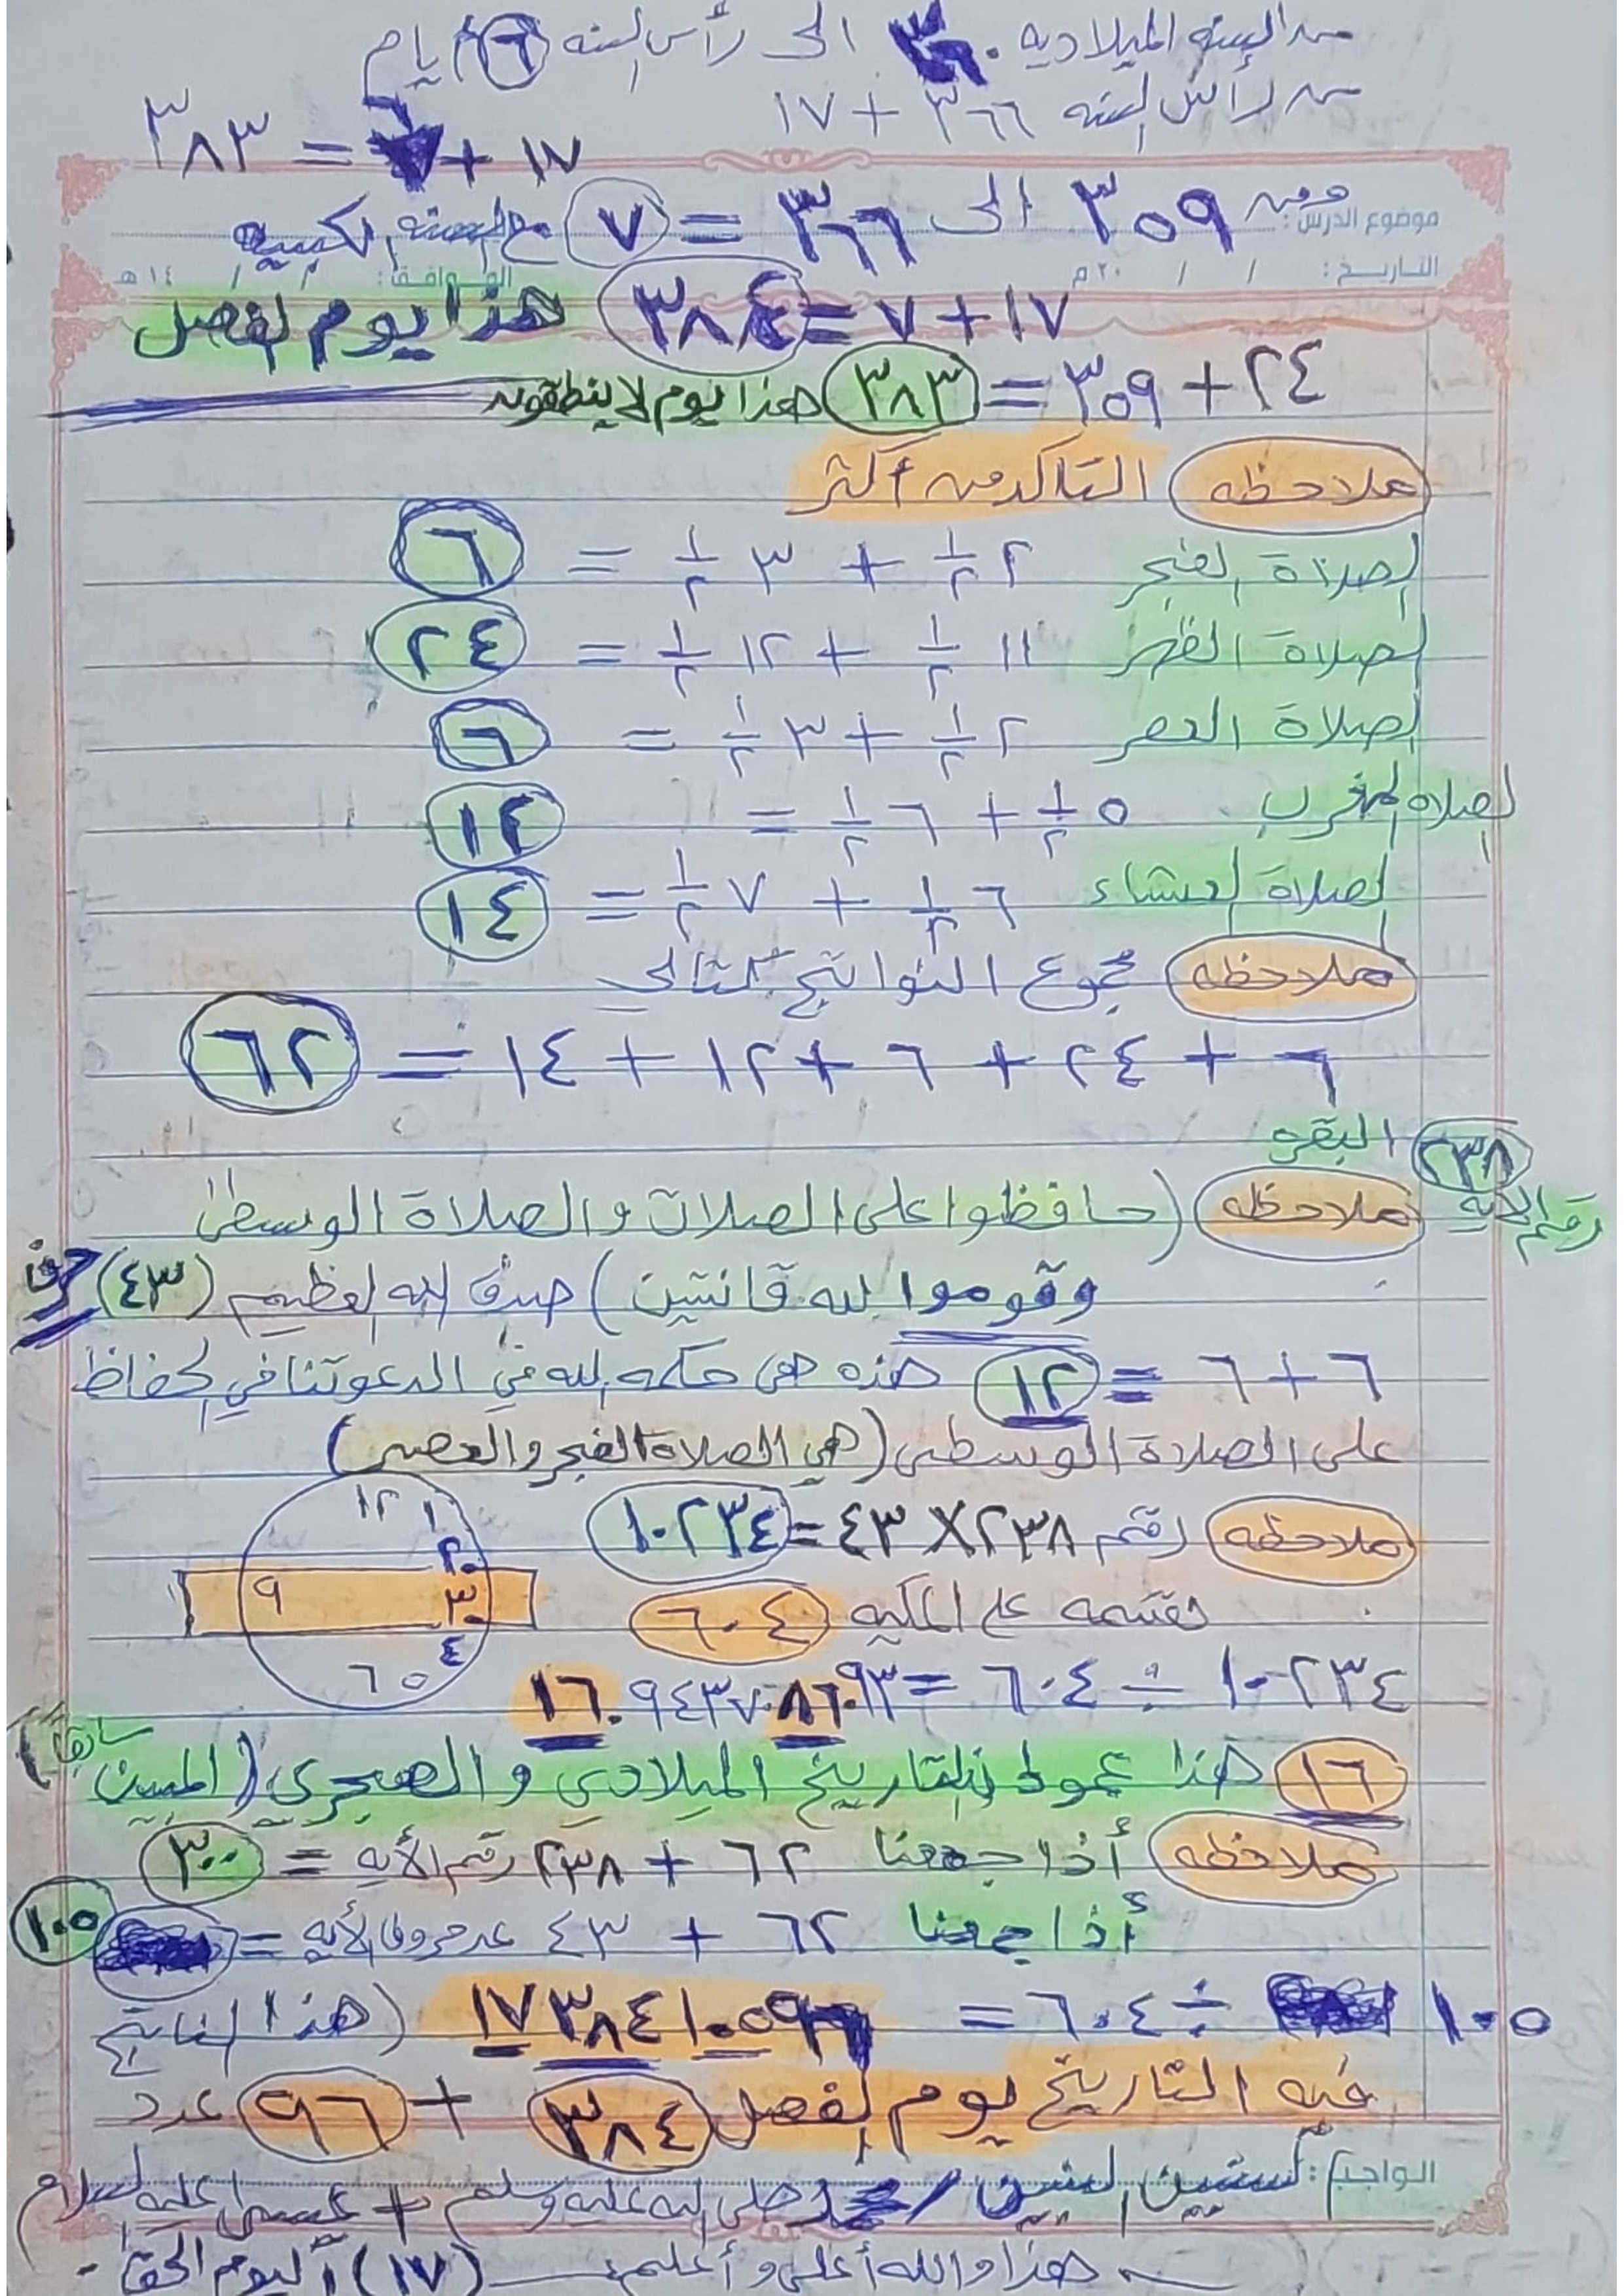 من السنه الميلاديه . الى رأس السنه ٦ أيام
من رأس السنه ٣٦٦ + ١٧
١٧ + = ٣٨٣
موضوع الدرس :
من ٣٥٩ الى ٣٦٦ = ٧ مع السنه الكبيسه
التاريخ : / / ٢٠ م الموافق : / / ١٤ هـ
١٧ + ٧ = ٣٨٤ هذا يوم الفصل
٢٤ + ٣٥٩ = ٣٨٣ هذا يوم لا ينطقون
ملاحظه التاكد من أكثر
لصلاة الفجر ٢ ١/٢ + ٣ ١/٢ = ٦
لصلاة الظهر ١١ ١/٢ + ١٢ ١/٢ = ٢٤
لصلاة العصر ٢ ١/٢ + ٣ ١/٢ = ٦
لصلاة المغرب ٥ ١/٢ + ٦ ١/٢ = ١٢
لصلاة العشاء ٦ ١/٢ + ٧ ١/٢ = ١٤
ملاحظه مجموع النواتج كتالى
٦ + ٢٤ + ٦ + ١٢ + ١٤ = ٦٢
٢٣٨ البقره
رقم الايه ملاحظه (حافظوا على الصلات والصلاة الوسطى
وقوموا لله قانتين) صدق الله العظيم (٤٣) حرف
٦ + ٦ = ١٢ هذه هى حكمه الله في الدعوتنا في الحفاظ
على الصلاة الوسطى (هي الصلاة الفجر والعصر)
ملاحظه رقم ٢٣٨ X ٤٣ = ١٠٢٣٤
نقسمه على المكيه ٦٠٤
١٢ ١ ٢ ٣ ٤ ٥ ٦ ٩
١٠٢٣٤ ÷ ٦٠٤ = ١٦.٩٤٣٧٠٨٦٠٩٣
١٦ هذا عمود التاريخ الميلادي والهجري (المبين سابقا)
ملاحظه أذا جمعنا ٦٢ + ٢٣٨ رقم الأيه = ٣٠٠
أذا جمعنا ٦٢ + ٤٣ عدد حروف الأيه = ١٠٥
١٠٥ ÷ ٦٠٤ = ١٧٣٨٤١٠٥٩٦ (هذا الناتج
فيه التاريخ يوم الفصل ٣٨٤ + ٩٦ عدد
الواجب :
صلى الله عليه وسلم + عيسى عليه السلام
هذا والله أعلى وأعلم (١٧) اليوم الحق